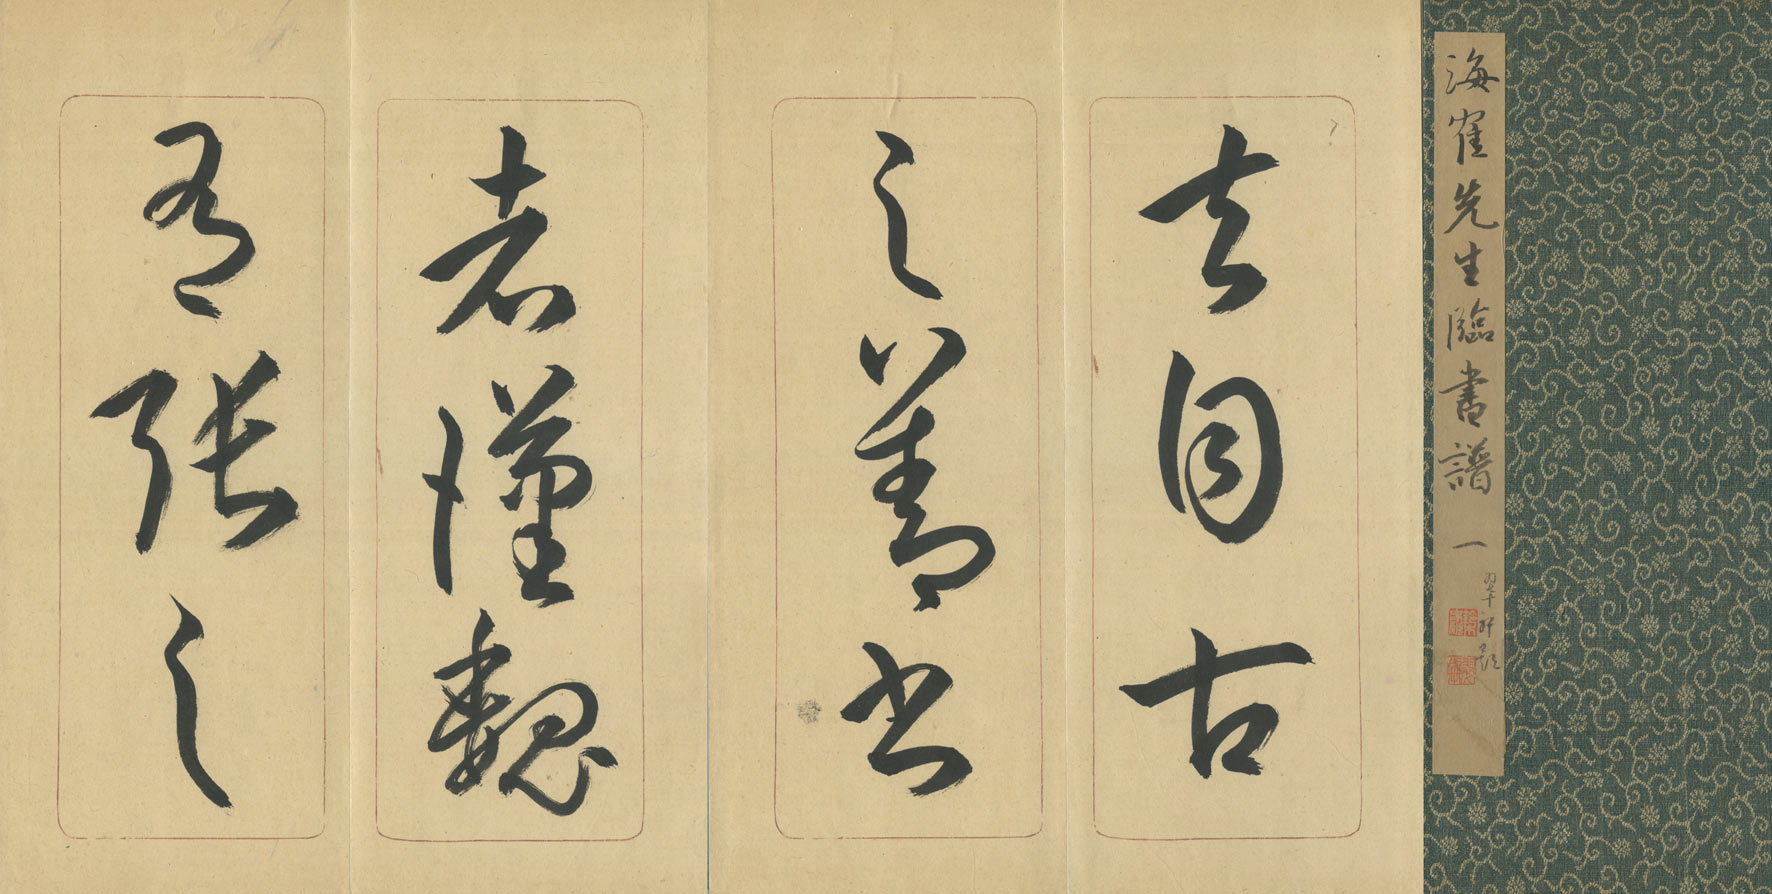 海崔先生臨書譜 一
夫自古
之善書
者漢魏
有張之